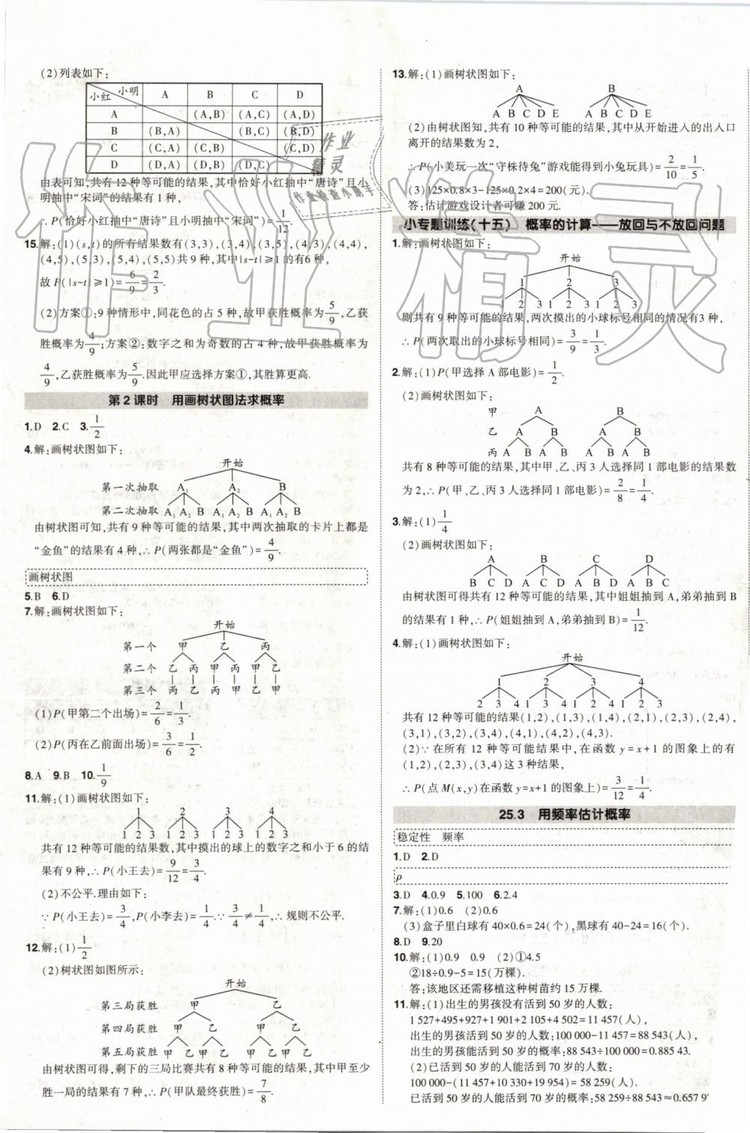 (2)列表如下:
小明 小红 A B C D
A (A,B) (A,C) (A,D)
B (B,A) (B,C) (B,D)
C (C,A) (C,B) (C,D)
D (D,A) (D,B) (D,C)
由表可知,共有12种等可能的结果,其中恰好小红抽中“唐诗”且小
明抽中“宋词”的结果有1种,
∴P(恰好小红抽中“唐诗”且小明抽中“宋词”)=1/12.
10.解:(1)(s,t)的所有结果有(3,3),(3,4),(3,5),(4,3),(4,4),
(4,5),(5,3),(5,4),(5,5)共9种,其中|s-t|≥1的有6种,
故P(|s-t|≥1)=6/9=2/3.
(2)方案①:9种情形中,同花色的占5种,故甲获胜概率为5/9,乙获
胜概率为4/9;方案②:数字之和为奇数的占4种,故甲获胜概率为
4/9,乙获胜概率为5/9.因此甲应选择方案①,其胜算更高.
第2课时 用画树状图法求概率
1.D 2.C 3.1/2
4.解:画树状图如下:
开始
第一次抽取 A₁ A₂ B
第二次抽取 A₁ A₂ B A₁ A₂ B A₁ A₂ B
由树状图可知,共有9种等可能的结果,其中两次抽取的卡片上都是
“金鱼”的结果有4种,∴P(两张都是“金鱼”)=4/9.
画树状图
5.B 6.D
7.解:画树状图如下:
开始
第一个 甲 乙 丙
第二个 乙 丙 甲 丙 甲 乙
第三个 丙 乙 丙 甲 乙 甲
(1)P(甲第二个出场)=2/6=1/3.
(2)P(丙在乙前面出场)=3/6=1/2.
8.A 9.B 10.1/9
11.解:(1)画树状图如下:
1 2 3 4
1 2 3 1 2 3 1 2 3 1 2 3
共有12种等可能的结果数,其中摸出的球上的数字之和小于6的结
果有9种,∴P(小王去)=9/12=3/4.
(2)不公平.理由如下:
∵P(小王去)=3/4,P(小李去)=1/4,∵3/4≠1/4,∴规则不公平.
12.解:(1)1/2
(2)树状图如图所示:
第三局获胜 甲 乙
第四局获胜 甲 乙 甲 乙
第五局获胜 甲 乙 甲 乙 甲 乙 甲 乙
由树状图可得,剩下的三局比赛共有8种等可能的结果,其中甲至少
胜一局的结果有7种,∴P(甲队最终获胜)=7/8.
13.解:(1)画树状图如下:
A B
A B C D E A B C D E
(2)由树状图知,共有10种等可能的结果,其中从开始进入的出入口
离开的结果数为2,
∴P(小美玩一次“守株待兔”游戏能得到小兔玩具)=2/10=1/5.
(3)125×0.8×3-125×0.2×4=200(元).
答:估计游戏设计者可赚200元.
小专题训练(十五) 概率的计算——放回与不放回问题
1.解:画树状图如下:
开始
1 2 3
1 2 3 1 2 3 1 2 3
则共有9种等可能的结果,两次摸出的小球标号相同的情况有3种,
∴P(两次取出的小球标号相同)=3/9=1/3.
2.解:(1)P(甲选择A部电影)=1/2.
(2)画树状图如下:
甲 A B
乙 A B A B
丙 A B A B A B A B
共有8种等可能的结果,其中甲、乙、丙3人选择同1部电影的结果数
为2,∴P(甲、乙、丙3人选择同1部电影)=2/8=1/4.
3.解:(1)1/4
(2)画树状图如下:
A B C D
B C D A C D A B D A B C
由树状图可得共有12种等可能的结果,其中姐姐抽到A,弟弟抽到B
的结果有1种,∴P(姐姐抽到A,弟弟抽到B)=1/12.
4.解:(1)画树状图如下:
开始
1 2 3 4
2 3 4 1 3 4 1 2 4 1 2 3
共有12种等可能的结果(1,2),(1,3),(1,4),(2,1),(2,3),(2,4),
(3,1),(3,2),(3,4),(4,1),(4,2),(4,3).
(2)∵在所有12种等可能结果中,在函数y=x+1的图象上的有
(1,2),(2,3),(3,4)这3种结果,
∴P(点M(x,y)在函数y=x+1的图象上)=3/12=1/4.
25.3 用频率估计概率
稳定性 频率
1.D 2.D
p
3.D 4.0.9 5.100 6.2.4
7.解:(1)0.6 (2)0.6
(3)盒子里白球有40×0.6=24(个),黑球有40-24=16(个).
8.D 9.20
10.解:(1)0.9 0.9 (2)①4.5
②18÷0.9-5=15(万棵).
答:该地区还需移植这种树苗约15万棵.
11.解:(1)出生的男孩没有活到50岁的人数:
1 527+495+927+1 901+2 105+4 502=11 457(人),
出生的男孩能活到50岁的人数:100 000-11 457=88 543(人),
出生的男孩能活到50岁的概率:88 543÷100 000=0.885 43.
(2)已活到50岁的人能活到70岁的人数:
100 000-(11 457+10 330+19 954)=58 259(人).
已活到50岁的人能活到70岁的概率:58 259÷88 543≈0.657 9
作业精灵
作业
精灵